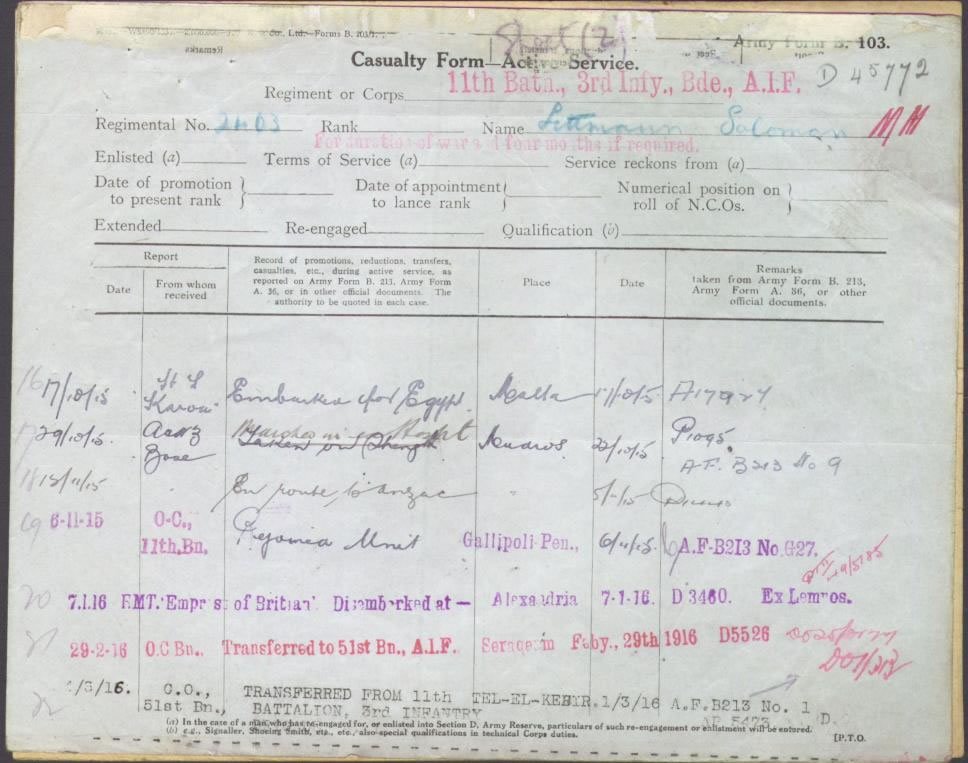 Co., Ltd.—Forms B. 103/1.
Sheet (2)
Remarks
Army Form B. 103.
Casualty Form—Active Service.
D 45772
11th Batn., 3rd Infy., Bde., A.I.F.
Regiment or Corps
Regimental No. 2403 Rank Name Littmann Soloman MM
For duration of war and four months if required.
Enlisted (a) Terms of Service (a) Service reckons from (a)
Date of promotion to present rank } Date of appointment to lance rank } Numerical position on roll of N.C.Os. }
Extended Re-engaged Qualification (b)
Report
Date
From whom received
Record of promotions, reductions, transfers, casualties, etc., during active service, as reported on Army Form B. 213, Army Form A. 36, or in other official documents. The authority to be quoted in each case.
Place
Date
Remarks taken from Army Form B. 213, Army Form A. 36, or other official documents.
16 17/10/15 Embarked for Egypt Malta 17/10/15 A17924
17 29/10/15 Base Taken on Strength Mudros 22/10/15 A.F. B213 No 9
18 15/11/15 En route to Anzac " 5/11/15
19 6-11-15 O.C., 11th.Bn. Rejoined Unit Gallipoli Pen., 6/11/15 A.F-B213 No.G27.
20 7.1.16 RMT.'Empress of Britian' Disembarked at — Alexandria 7-1-16. D 3460. Ex Lemnos.
21 29-2-16 O.C Bn., Transferred to 51st Bn., A.I.F. Serapeum Feby., 29th 1916 D5526
22 1/3/16. C.O., 51st Bn., TRANSFERRED FROM 11th BATTALION, 3rd INFANTRY TEL-EL-KEBYR. 1/3/16 A.F.B213 No. 1
AP 5473 D.
(a) In the case of a man who has re-engaged for, or enlisted into Section D, Army Reserve, particulars of such re-engagement or enlistment will be entered.
(b) e.g., Signaller, Shoeing Smith, etc., etc., also special qualifications in technical Corps duties.
[P.T.O.